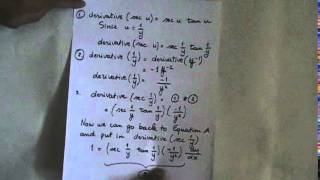 ① derivative (sec u) = sec u tan u
Since u = 1/y
derivative (sec 1/y) = sec 1/y tan 1/y
② derivative (1/y) = derivative (y⁻¹)
= -1 y⁻²
derivative (1/y) = -1/y²
2. derivative (sec 1/y) = ① * ②
= (sec 1/y tan 1/y) (-1/y²)
Now we can go back to Equation A
and put in derivative (sec 1/y)
1 = (sec 1/y tan 1/y) (-1/y²) dy/dx